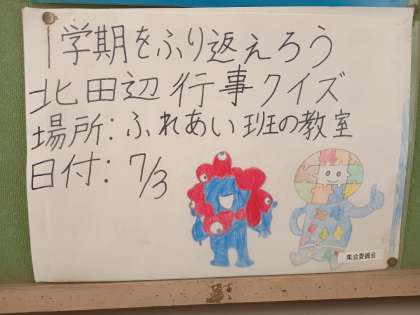 1学期をふり返えろう
北田辺行事クイズ
場所:ふれあい班の教室
日付:7/3
集会委員会